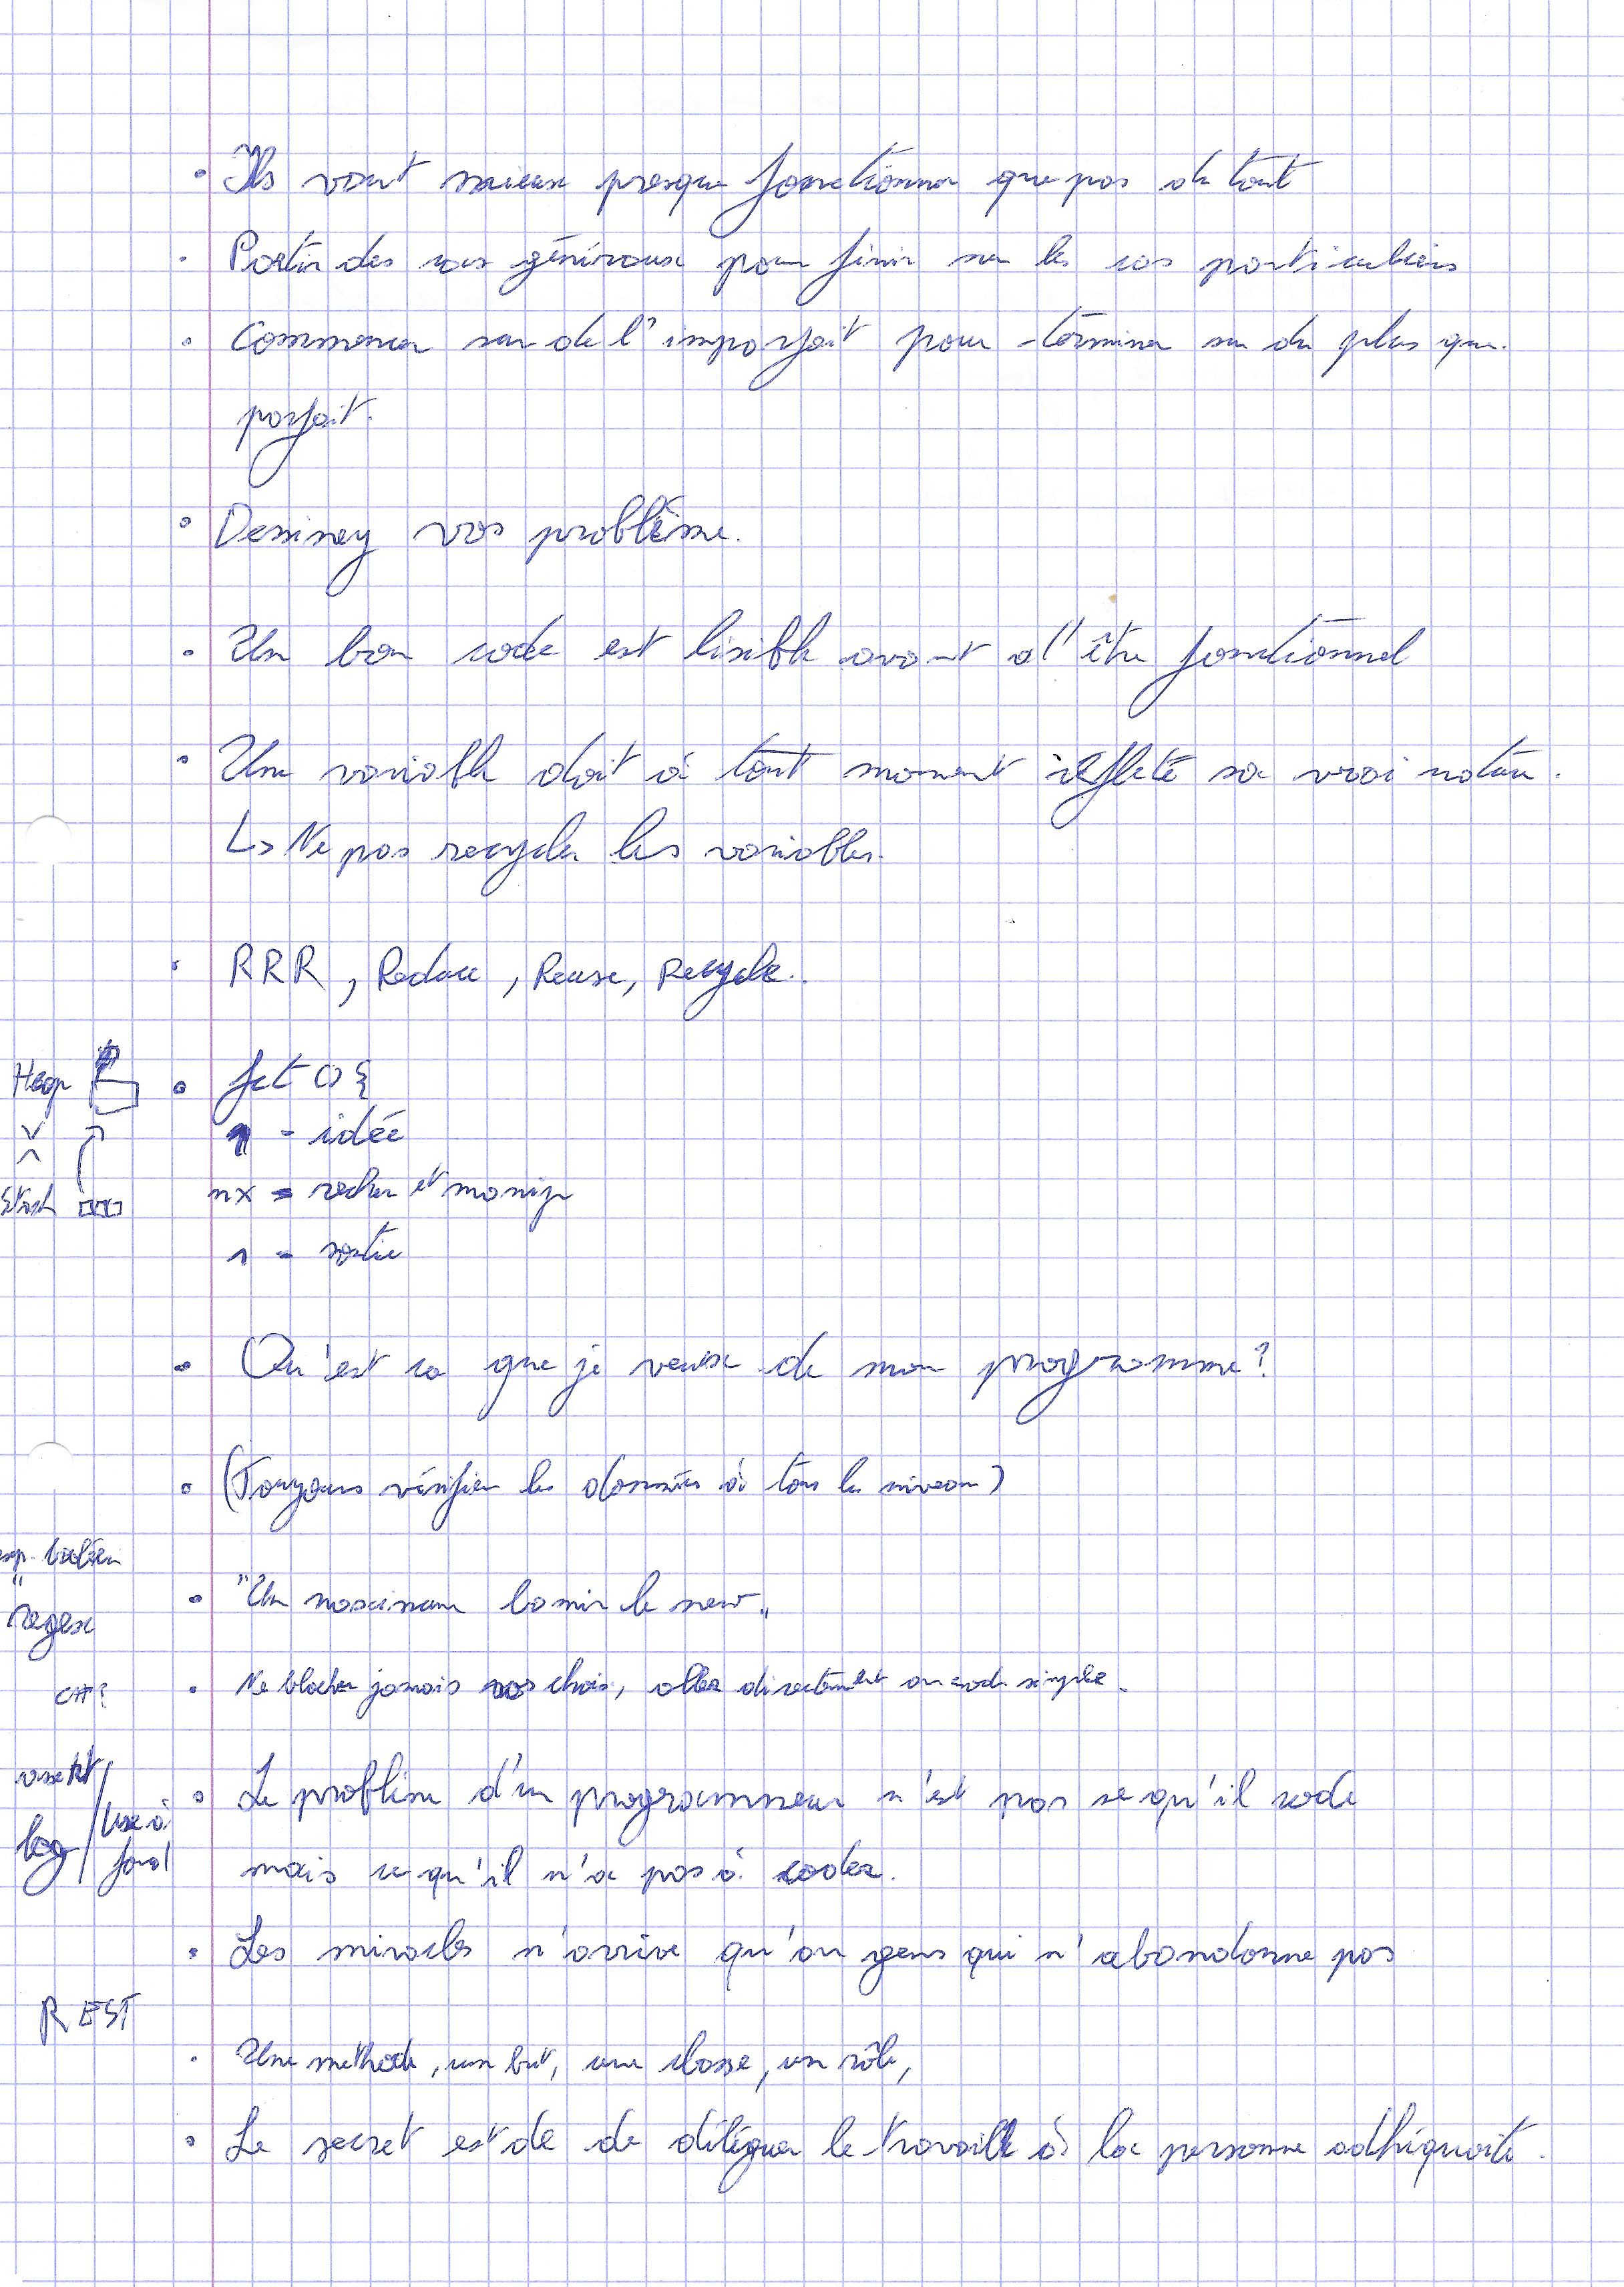 • Ils vaut mieux presque fonctionner que pas du tout
• Partir des cas généraux pour finir sur les cas particuliers
• Commencer sur de l'imparfait pour terminer sur du plus que
parfait.
• Dessinez vos problème.
• Un bon code est lisible avant d'être fonctionnel
• Une variable doit à tout moment refleté sa vrai nature.
↳ Ne pas recycler les variables.
• RRR, Reduce, Reuse, Recycle.
Heap • fct () {
1 - idée
Stack nx = et manip
1 - sortie
• Qu'est ca que je veux de mon programme?
• (Toujours vérifier les données à tous les niveau)
regex
• "Un maximum bannir le new"
• Ne blocker jamais vos choix, allez directement au code simple.
C#?
• Le problème d'un programmeur n'est pas se qu'il code
log / Use à
fond
mais ce qu'il n'a pas à coder.
• Les miracles n'arrive qu'au gens qui n'abandonne pas
REST
• Une méthode, un but, une classe, un rôle,
• Le secret est de de déléguer le travaille à la personne adhéquate.